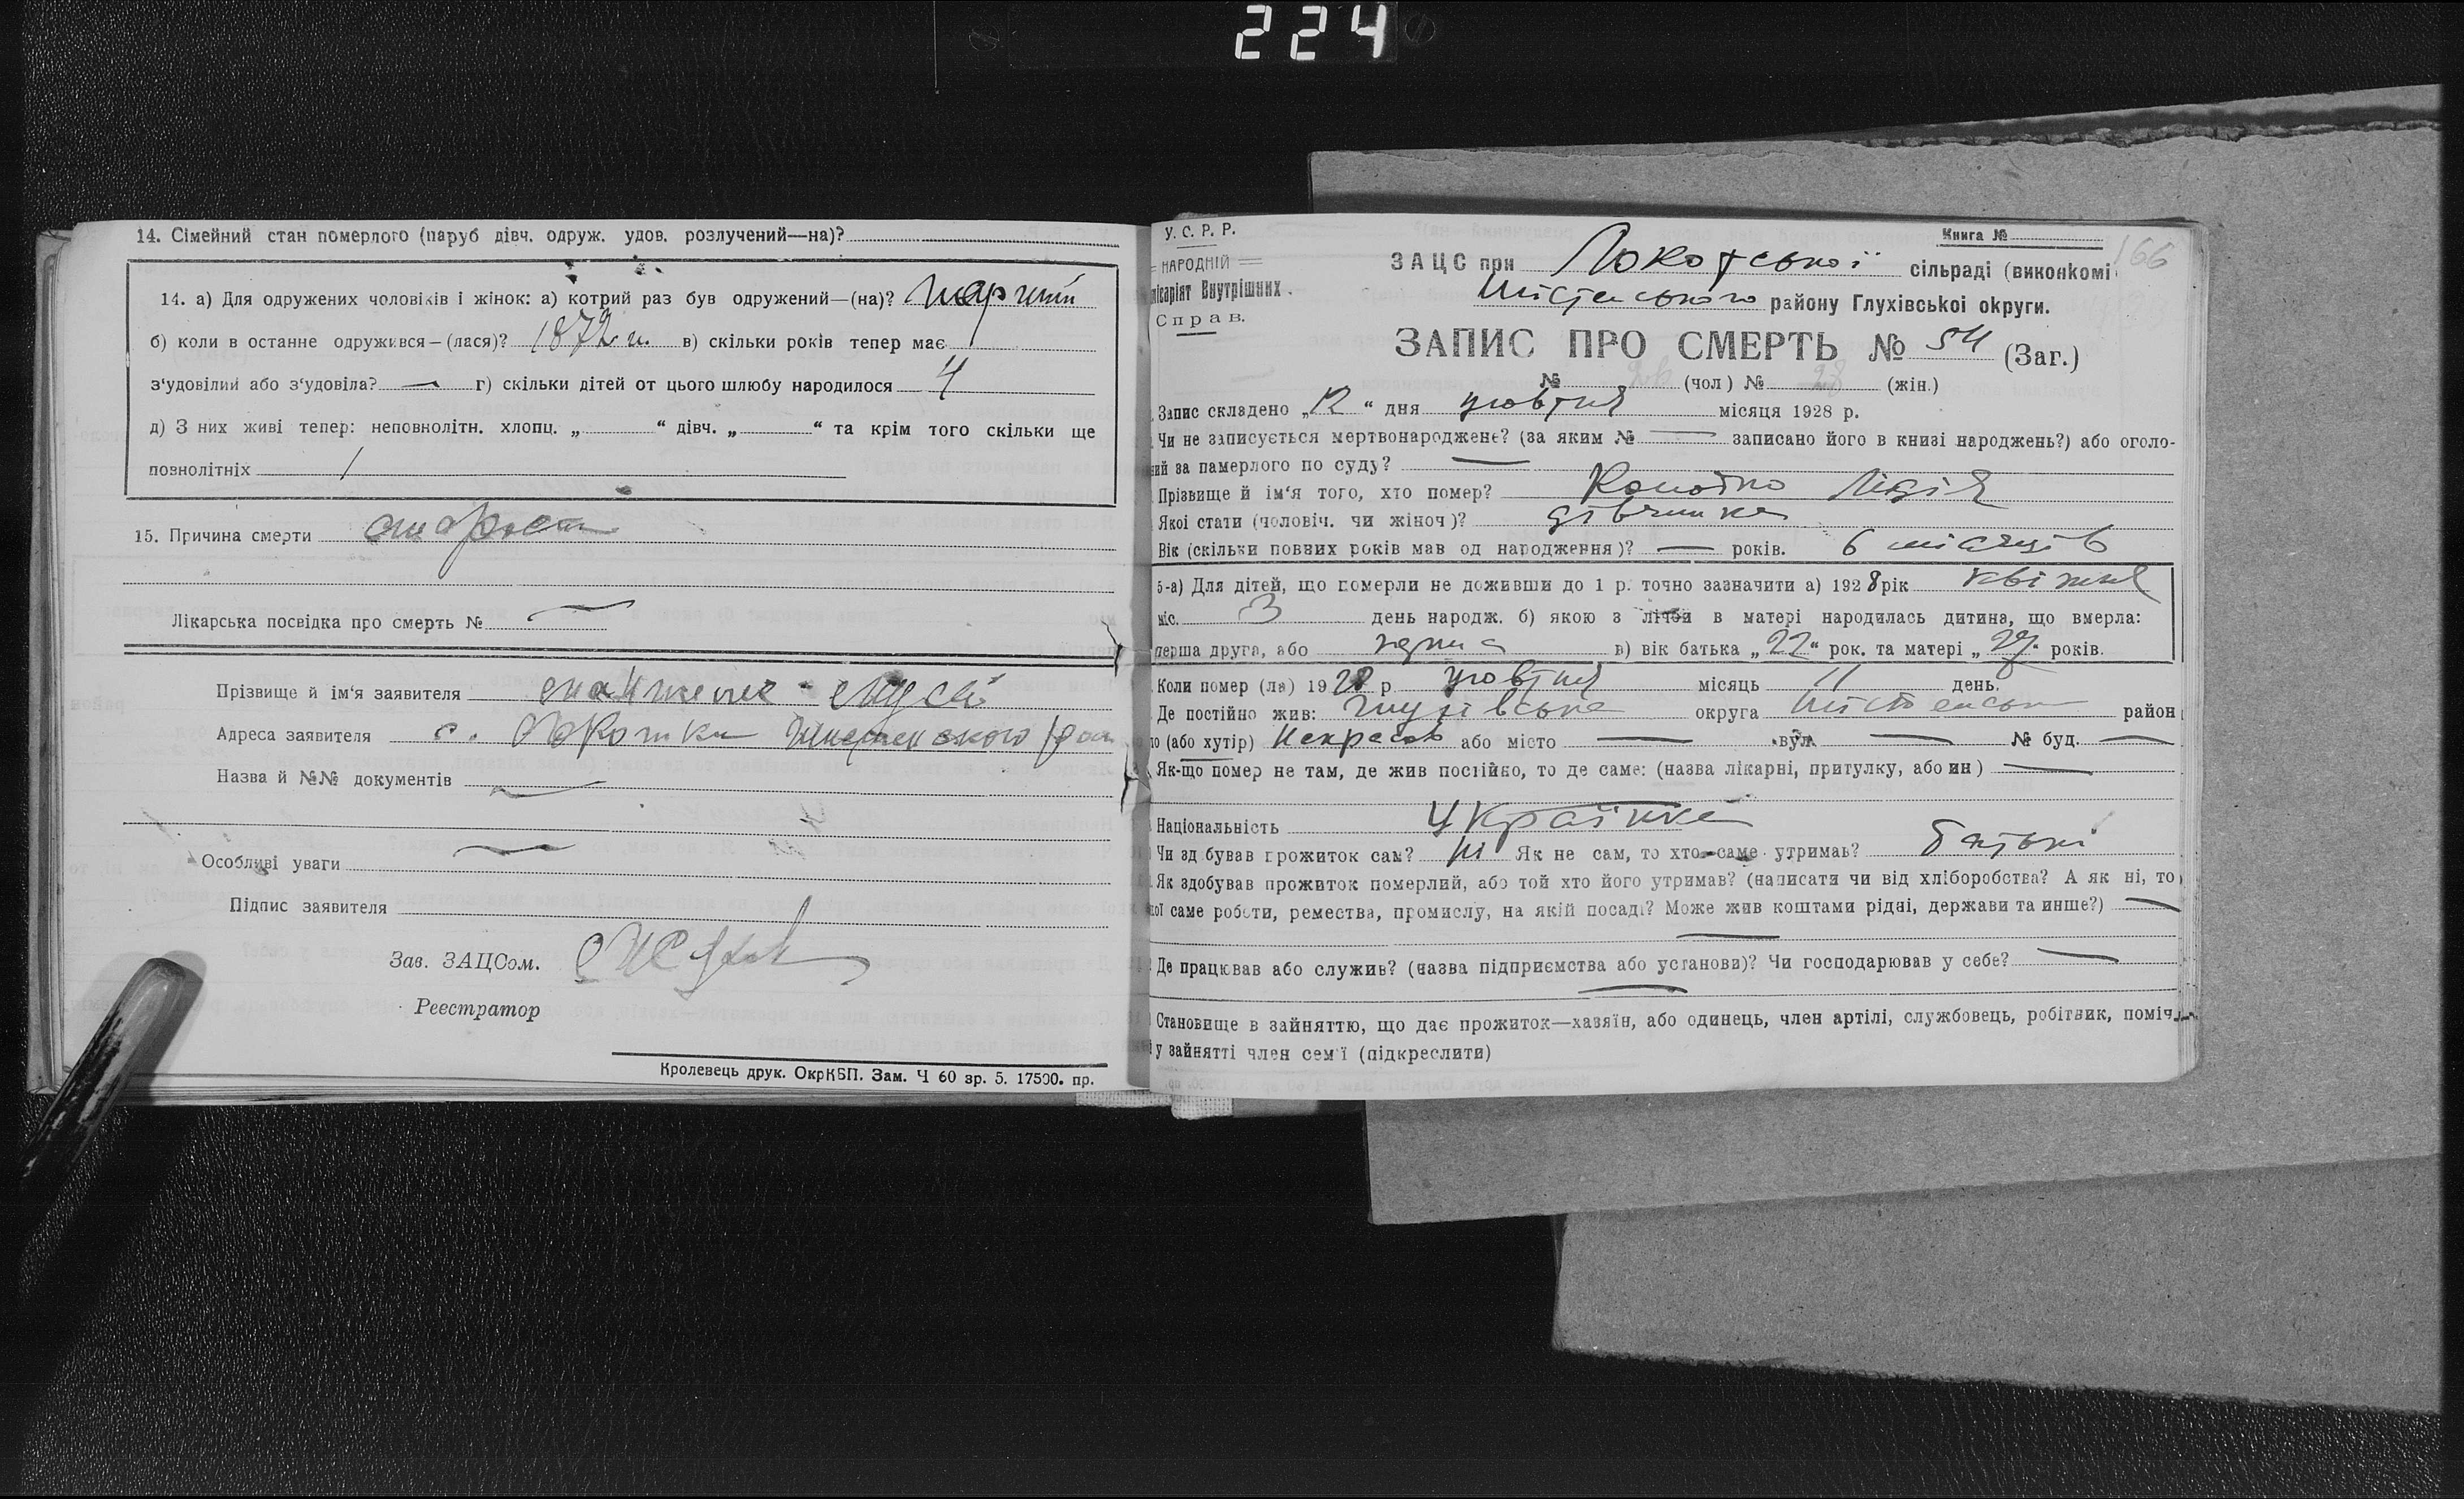 224
14. Сімейний стан померлого (паруб дівч. одруж. удов. розлучений—на)?
14. а) Для одружених чоловіків і жінок: а) котрий раз був одружений—(на)? перший
б) коли в останне одружився—(лася)? 1872 в) скільки років тепер має
з'удовілий або з'удовіла? — г) скільки дітей от цього шлюбу народилося 4
д) З них живі тепер: неповнолітн. хлопц. „ “ дівч. „ “ та крім того скільки ще
повнолітніх 1
15. Причина смерти старость
Лікарська посвідка про смерть № —
Прізвище й ім'я заявителя
Адреса заявителя с. Локотки
Назва й №№ документів —
Особливі уваги —
Підпис заявителя
Зав. ЗАЦСом.
Реєстратор
Кролевець друк. ОкрКБП. Зам. Ч 60 зр. 5. 17500. пр.
У. С. Р. Р.
НАРОДНІЙ
місаріят Внутрішних
Справ.
Книга №
166
ЗАЦС при Локотської сільраді (виконкомі
Шістенського району Глухівської округи.
ЗАПИС ПРО СМЕРТЬ № 54 (Заг.)
№ 26 (чол) № 28 (жін.)
Запис складено „12“ дня жовтня місяця 1928 р.
Чи не записується мертвонароджене? (за яким № — записано його в книзі народжень?) або оголо-
ний за памерлого по суду? —
Прізвище й ім'я того, хто помер? Лідія
Якої стати (чоловіч. чи жіноч)? дівчинка
Вік (скільки повних років мав од народження)? — років. 6 місяців
5-а) Для дітей, що померли не доживши до 1 р. точно зазначити а) 1928 рік квітня
міс. 3 день народж. б) якою з літби в матері народилась дитина, що вмерла:
перша друга, або в) вік батька „22“ рок. та матері „ років.
Коли помер (ла) 1928 р жовтня місяць 11 день.
Де постійно жив: Глухівська округа район
ло (або хутір) Некрасов або місто — вул. — № буд. —
Як-що помер не там, де жив постійно, то де саме: (назва лікарні, притулку, або ин) —
Національність Українка
Чи зд бував прожиток сам? ні Як не сам, то хто саме утримав? батьки
Як здобував прожиток померлий, або той хто його утримав? (написати чи від хліборобства? А як ні, то
кої саме роботи, ремества, промислу, на якій посаді? Може жив коштами рідні, держави та инше?) —
—
Де працював або служив? (назва підприємства або установи)? Чи господарював у себе? —
—
Становище в зайняттю, що дає прожиток—хазяїн, або одинець, член артілі, службовець, робітник, поміч
у зайнятті член сем'ї (підкреслити)